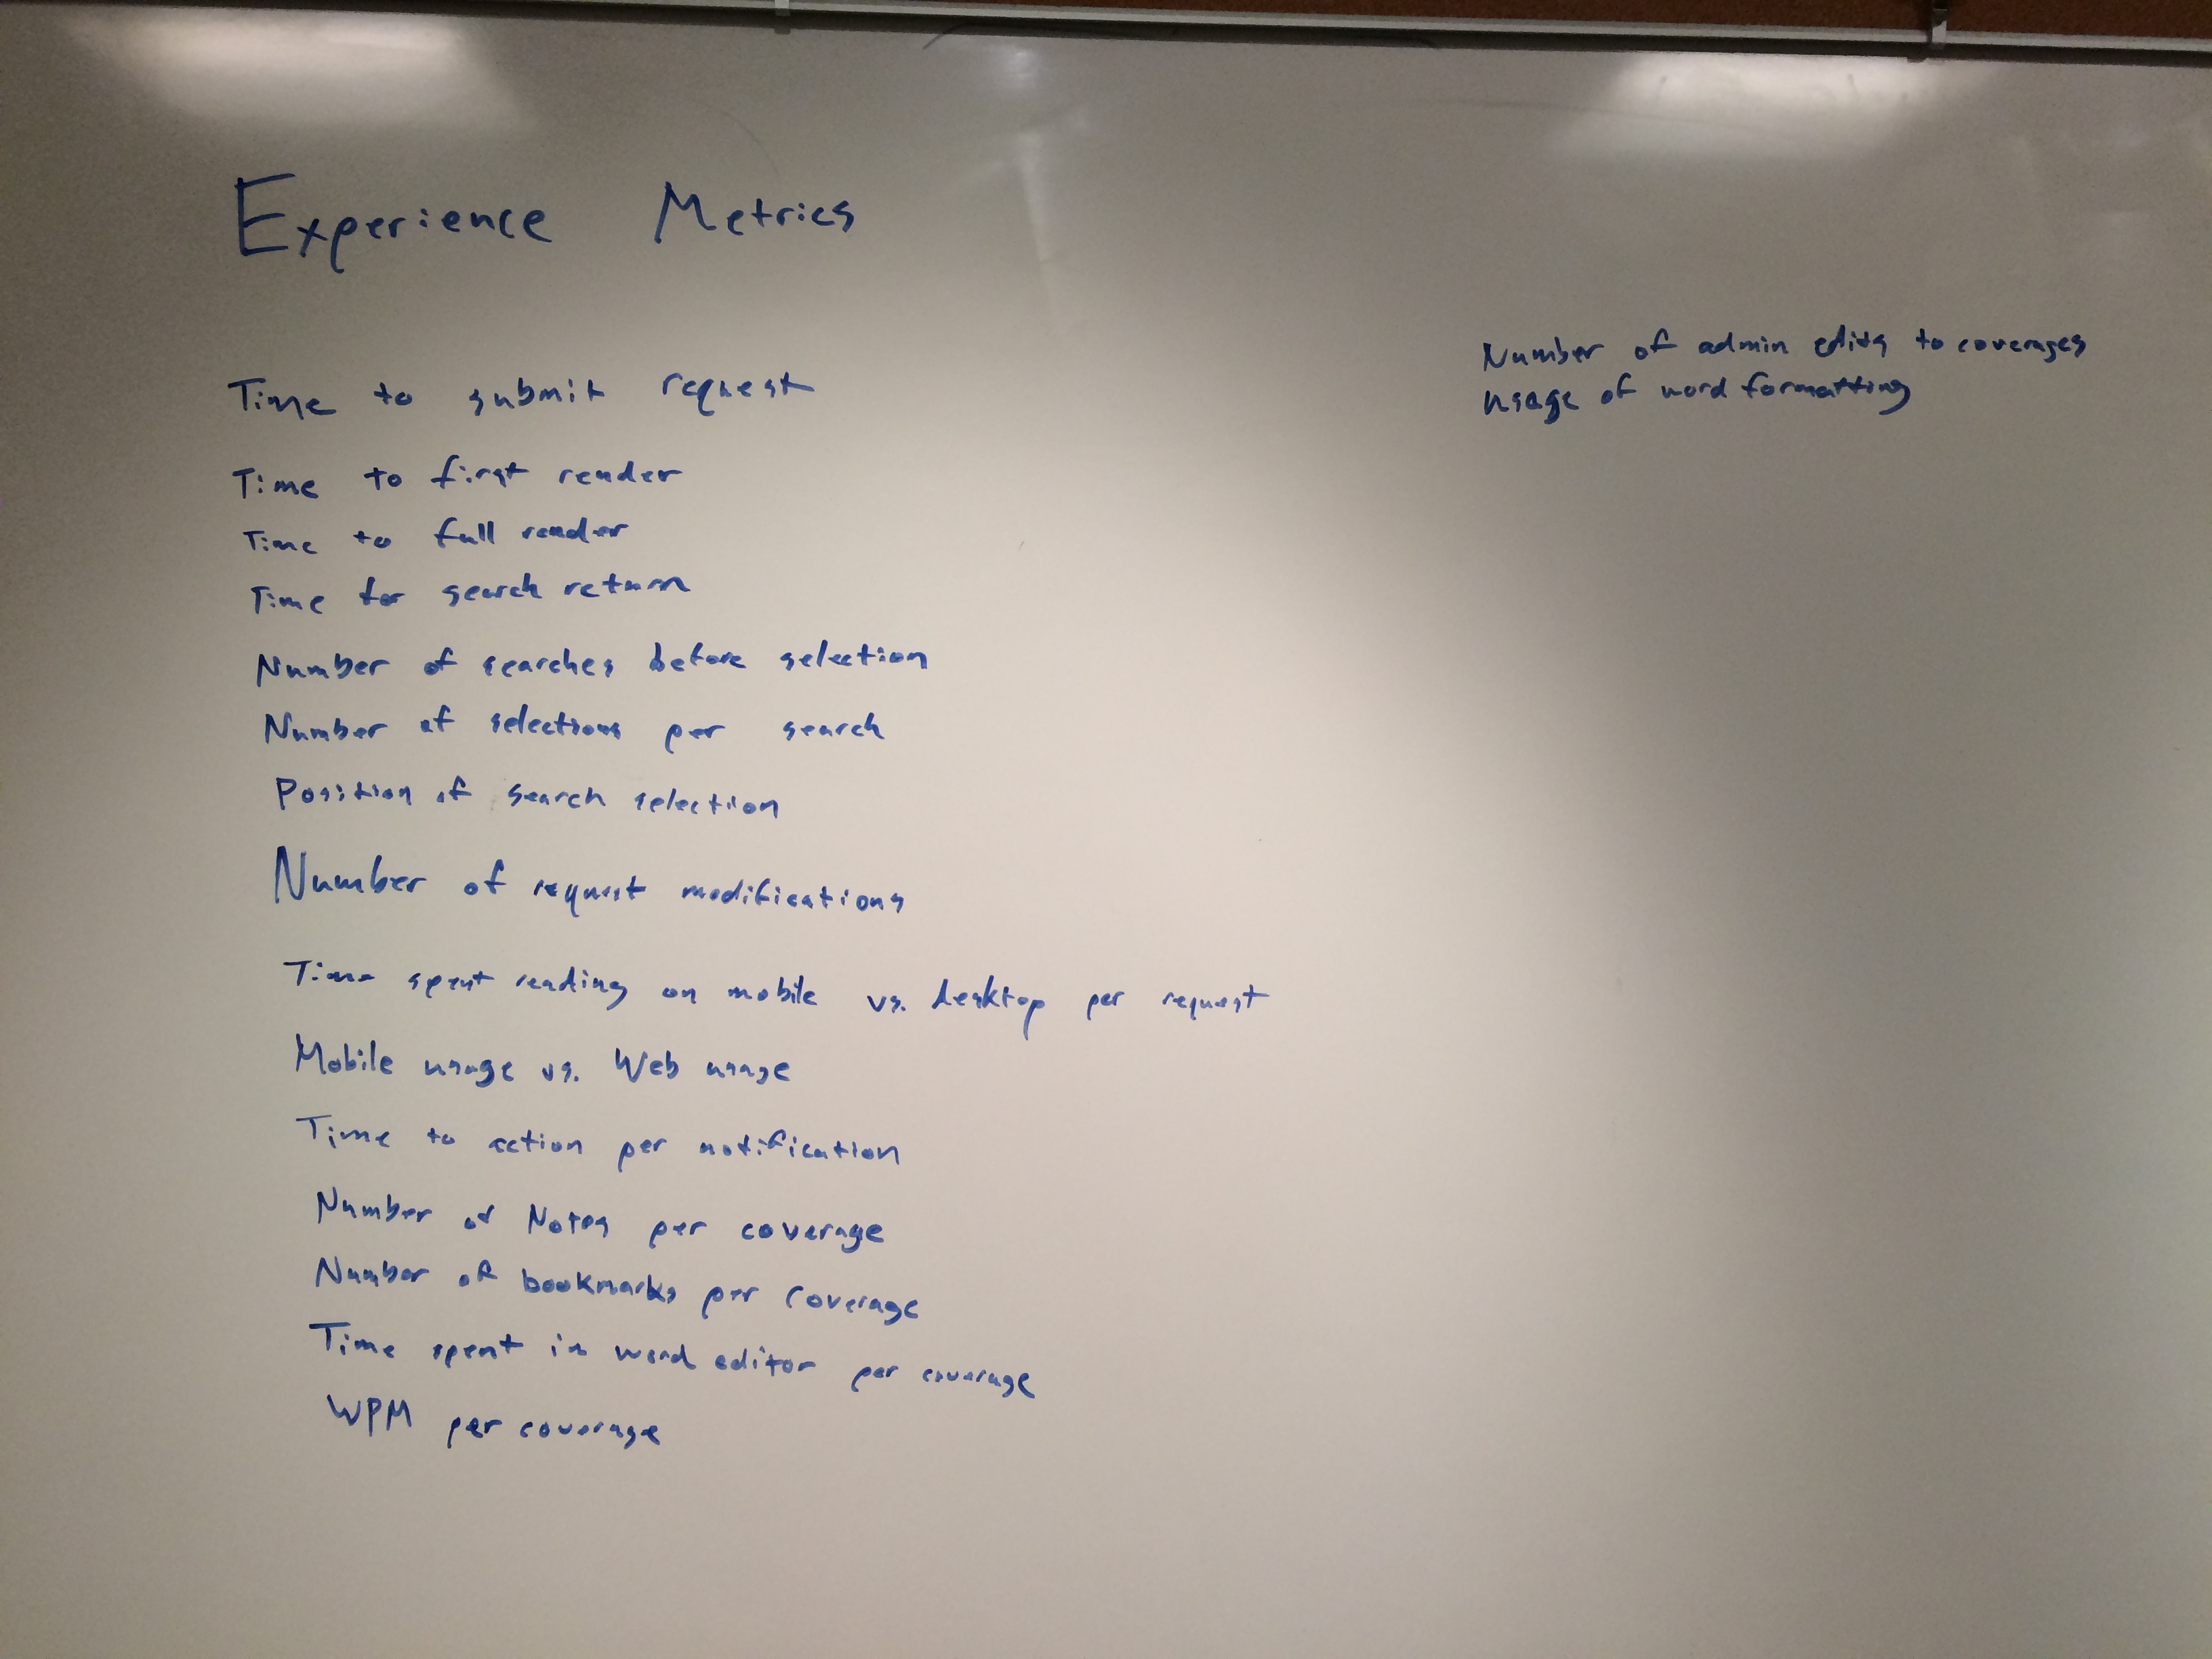 Experience Metrics
Time to submit request
Time to first render
Time to full render
Time for search return
Number of searches before selection
Number of selections per search
Position of search selection
Number of request modifications
Time spent reading on mobile vs. desktop per request
Mobile usage vs. Web usage
Time to action per notification
Number of Notes per coverage
Number of bookmarks per coverage
Time spent in word editor per coverage
WPM per coverage
Number of admin edits to coverages
usage of word formatting